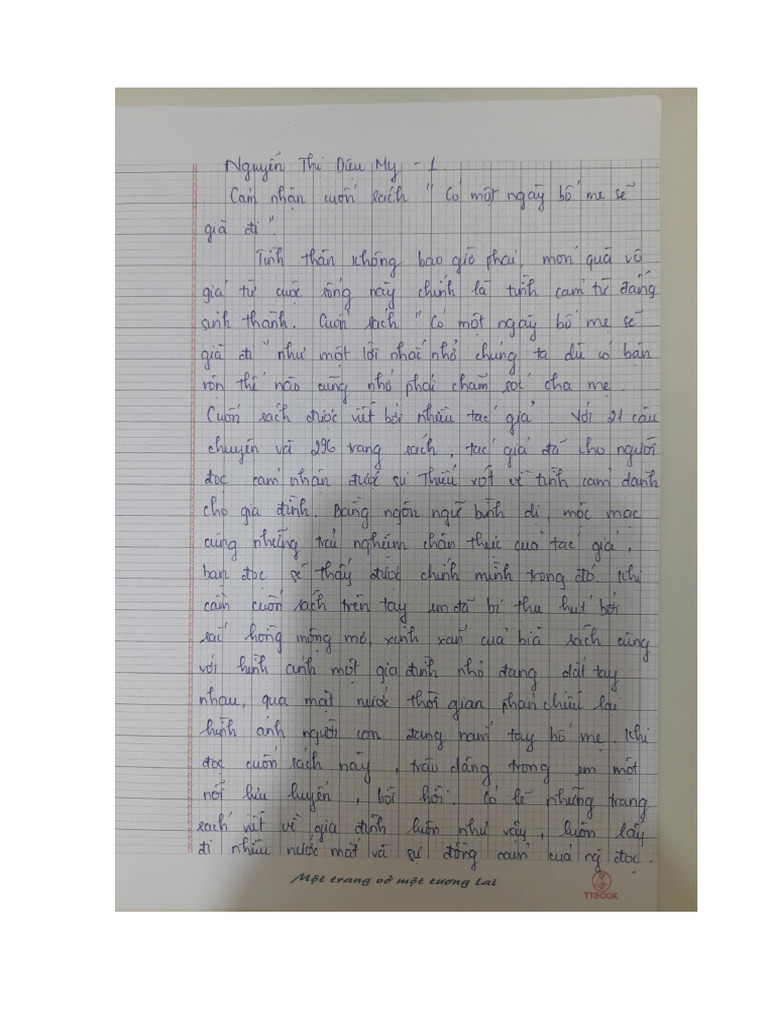 Nguyễn Thị Diệu My - 1
Cảm nhận cuốn sách " Có một ngày bố mẹ sẽ
già đi ".
Tình thân không bao giờ phai, món quà vô
giá từ cuộc sống này chính là tình cảm từ đấng
sinh thành. Cuốn sách " Có một ngày bố mẹ sẽ
già đi " như một lời nhắc nhở chúng ta dù có bận
rộn thế nào cũng nhớ phải chăm sóc cha mẹ.
Cuốn sách được viết bởi nhiều tác giả. Với 21 câu
chuyện và 296 trang sách, tác giả đã cho người
đọc cảm nhận được sự thiếu xót về tình cảm dành
cho gia đình. Bằng ngôn ngữ bình dị, mộc mạc
cùng những trải nghiệm chân thực của tác giả,
bạn đọc sẽ thấy được chính mình trong đó. Khi
cầm cuốn sách trên tay em đã bị thu hút bởi
sắc hồng mộng mơ, xinh xắn của bìa sách cùng
với hình ảnh một gia đình nhỏ đang dắt tay
nhau, qua mặt nước thời gian phản chiếu lại
hình ảnh người con đang nắm tay bố mẹ. Khi
đọc cuốn sách này, trào dâng trong em một
nỗi lưu luyến, bồi hồi. Có lẽ những trang
sách viết về gia đình luôn như vậy, luôn lấy
đi nhiều nước mắt và sự đồng cảm của ng đọc.
Một trang vở một tương lai
TTBOOK